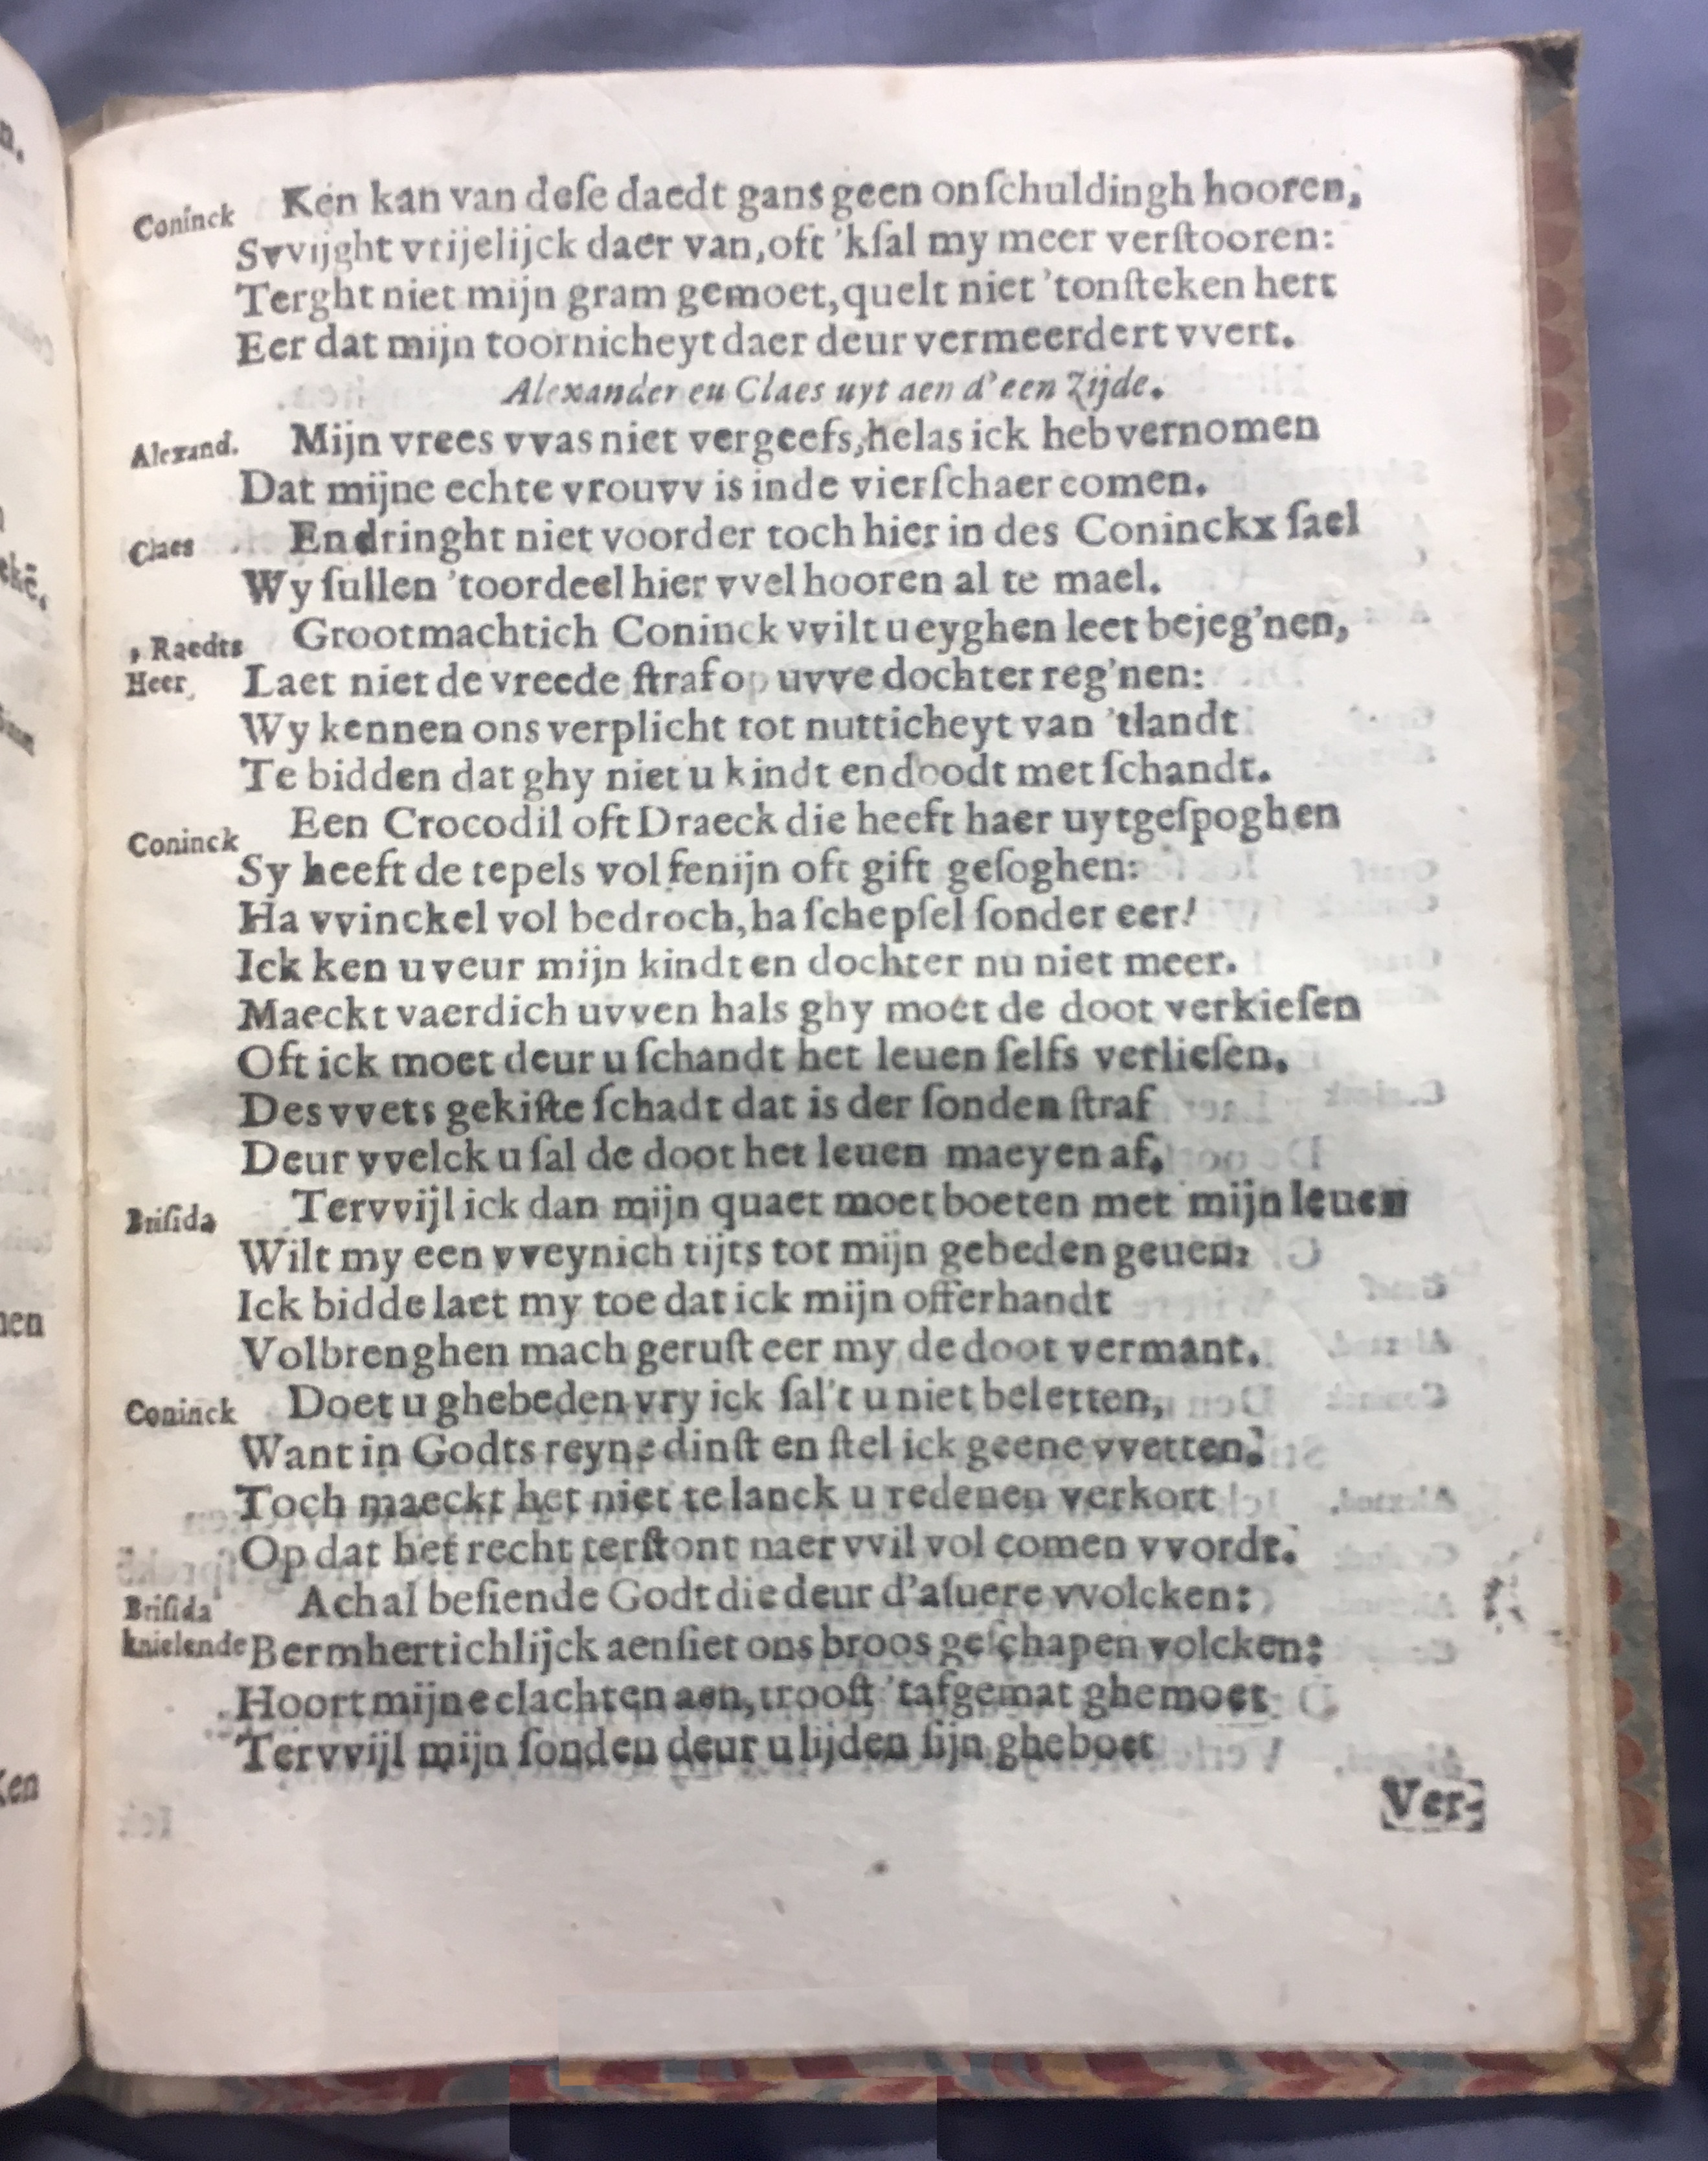 Coninck Ken kan van deſe daedt gans geen onſchuldingh hooren,
Svvijght vrijelijck daer van, oft 'kſal my meer verſtooren:
Terght niet mijn gram gemoet, quelt niet 'tonſteken hert
Eer dat mijn toornicheyt daer deur vermeerdert vvert.
Alexander en Claes uyt aen d'een Zijde.
Alexand. Mijn vrees vvas niet vergeefs, helas ick heb vernomen
Dat mijne echte vrouvv is inde vierſchaer comen.
Claes En dringht niet voorder toch hier in des Coninckx ſael
Wy ſullen 'toordeel hier vvel hooren al te mael.
, Raedts Grootmachtich Coninck vvilt u eyghen leet bejeg'nen,
Heer, Laet niet de vreede ſtraf op uvve dochter reg'nen:
Wy kennen ons verplicht tot nutticheyt van 'tlandt
Te bidden dat ghy niet u kindt en doodt met ſchandt.
Coninck Een Crocodil oft Draeck die heeft haer uytgeſpoghen
Sy heeft de tepels vol fenijn oft gift geſoghen:
Ha vvinckel vol bedroch, ha ſchepſel ſonder eer!
Ick ken u veur mijn kindt en dochter nu niet meer.
Maeckt vaerdich uvven hals ghy moet de doot verkieſen
Oft ick moet deur u ſchandt het leuen ſelfs verlieſen.
Des vvets gekiſte ſchadt dat is der ſonden ſtraf
Deur vvelck u ſal de doot het leuen maeyen af.
Briſida Tervvijl ick dan mijn quaet moet boeten met mijn leuen
Wilt my een vveynich tijts tot mijn gebeden geuen:
Ick bidde laet my toe dat ick mijn offerhandt
Volbrenghen mach geruſt eer my de doot vermant.
Coninck Doet u ghebeden vry ick ſal't u niet beletten,
Want in Godts reyne dinſt en ſtel ick geene vvetten:
Toch maeckt het niet te lanck u redenen verkort
Op dat het recht terſtont naer vvil vol comen vvordt.
Briſida Ach al beſiende Godt die deur d'aſuere vvolcken:
knielende Bermhertichlijck aenſiet ons broos geſchapen volcken:
Hoort mijne clachten aen, trooſt 'tafgemat ghemoet
Tervvijl mijn ſonden deur u lijden ſijn gheboet
Ver-